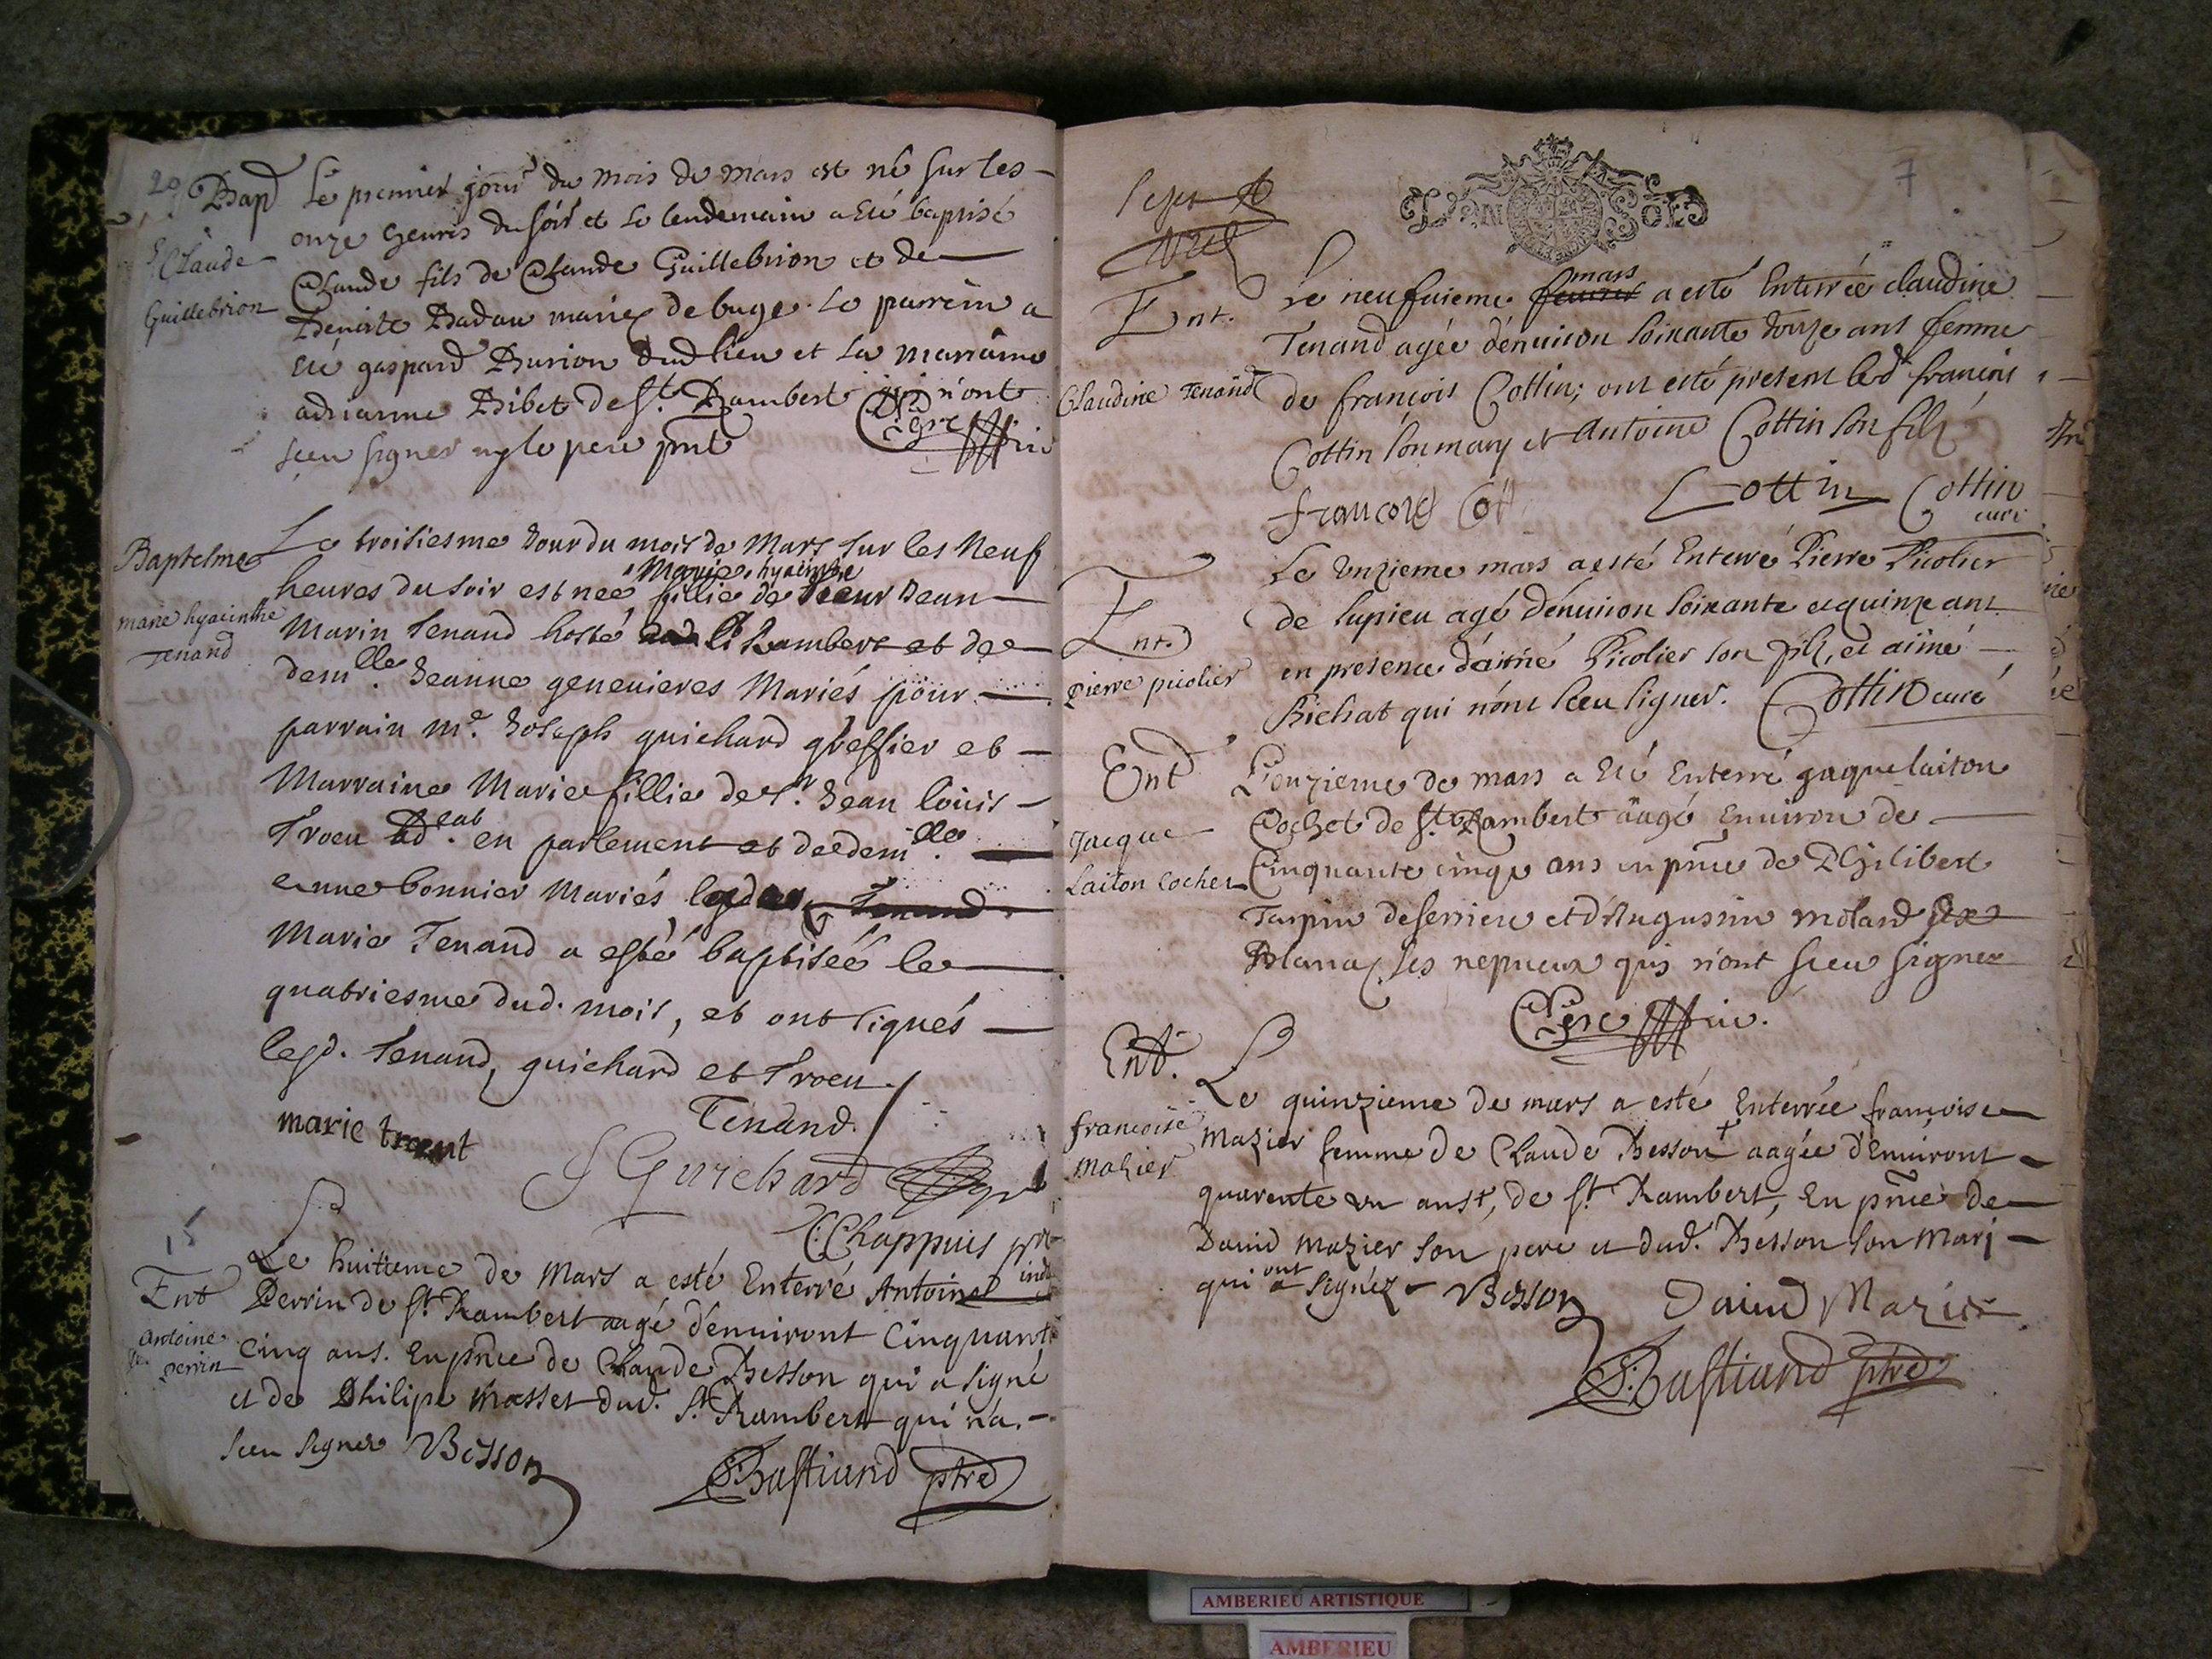 20
Bap
Claude
Guillebrion
Le premier jour du mois de Mars est né sur les
onze heures du soir et le lendemain a eté baptisé
Claude fils de Claude Guillebrion et de
Benoite Badau mariez de buge. Le parrein a
eté gaspard Burion dud lieu et la marraine
adrianne Bibet de St. Rambert qui n'ont
sceu signer ny le pere pnt
Baptesme
marie hyacinthe
Tenand
Le troisiesme Jour du mois de Mars sur les Neuf
heures du soir est née Marie hyacinthe fillie de sieur Jean
Marin Tenand hoste St Rambert et de
demlle. Jeanne genevieves Mariés pour
parrain Me. Joseph guichard greffier et
Marraine Marie fillie de Sr. Jean loüis
Trocu adcat. en parlement et de demlle.
anne bonnier Mariés, Tenand
Marie Tenand a esté baptiséé le
quatriesme dud. mois, et ont signés
lesd. Tenand, guichard et Trocu./
Tenand.
marie
J Guichard
C: Chappuis ptre
15
Ent
Antoine
perrin
Le huitieme de Mars a esté Enterré Antoine
Perrin de St. Rambert aagé d'enuiront Cinquante
Cinq ans. En pnce de Claude Besson qui a signé
et de Philipe Masset dud. St. Rambert qui n'a
sceu signer Besson
S: Bastiand ptre
7
Sept
Ent.
Claudine Tenand
Le neufuieme feurier mars a esté Enterrée claudine
Tenand agée d'enuiron soixante douze ans femme
de françois Cottin; ont esté present led françois
Cottin son mary et Antoine Cottin son filz
francois Cot
Cottin Cottin
curé
Ent.
Pierre picolier
Le Unzieme mars a esté Enterré Pierre Picolier
de lupieu agé d'enuiron soixante et quinze ans
en presence d'aimé Picolier son filz, et aimé
Bichat qui n'ont sceu signer. Cottin curé
Ent
Jacque
Laiton Cochet
L'onzieme de mars a eté Enterré gaque laiton
Cochet de St. Rambert aagé Enuiron de
Cinquante cinqs ans en pnce de Philibert
Tarpin de serriere et d'Augustin molard
Blanaz ses nepueux qui n'ont sceu signer
Ent.
francoise
mazier
Le quinzieme de mars a esté Enterrée françoise
Mazier femme de Claude Besson + aagée d'Enuiront
quarente un anst, de St. Rambert, En pnce de
Dauid mazier son pere et dud. Besson son Mari
qui ont signéz Besson Dauid Mazier
S: Bastiand ptre
AMBERIEU ARTISTIQUE
AMBERIEU